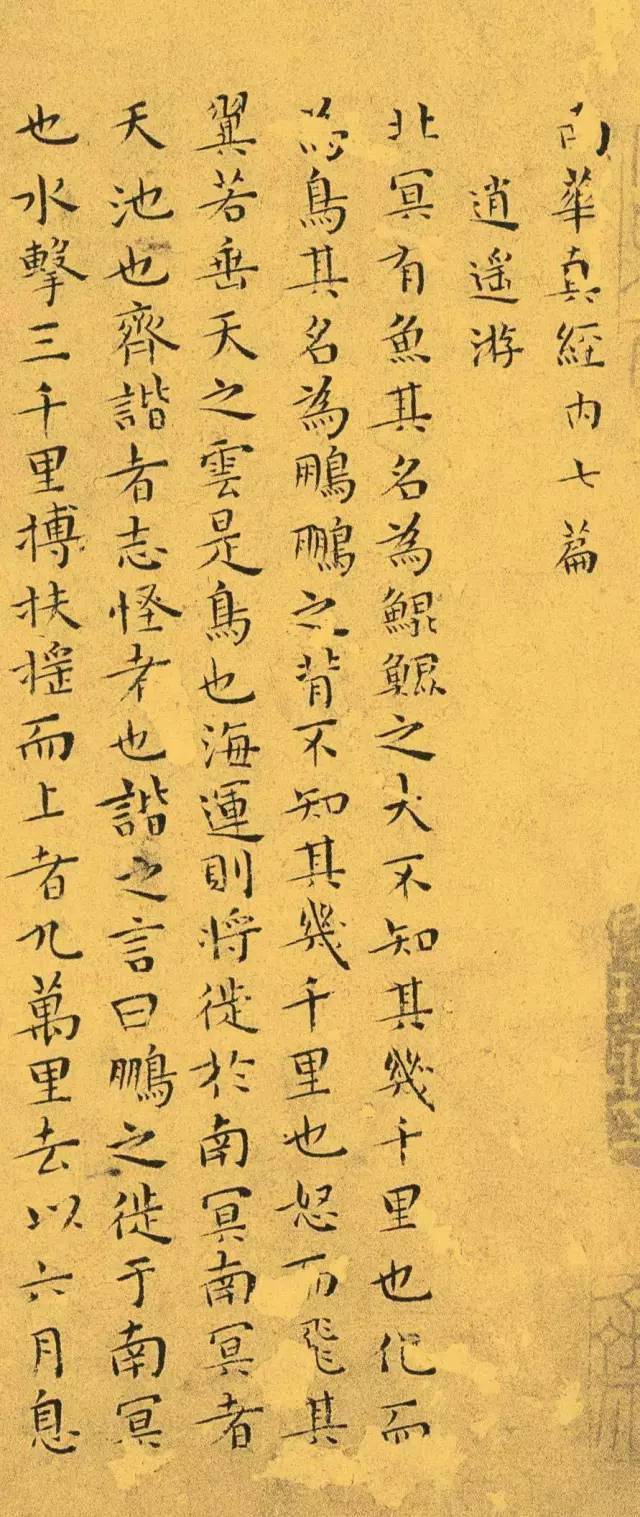 南華真經內七篇
逍遥游
北冥有魚其名為鯤鯤之大不知其幾千里也化而
為鳥其名為鵬鵬之背不知其幾千里也怒而飛其
翼若垂天之雲是鳥也海運則將徙於南冥南冥者
天池也齊諧者志怪者也諧之言曰鵬之徙于南冥
也水擊三千里摶扶摇而上者九萬里去以六月息